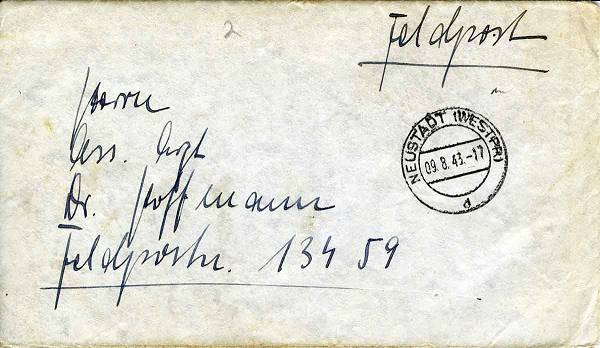 2
Feldpost
NEUSTADT (WESTPR)
09.8.43.-17
d
Herrn
Ass. Arzt
Dr. Hoffmann
Feldpostnr. 13459